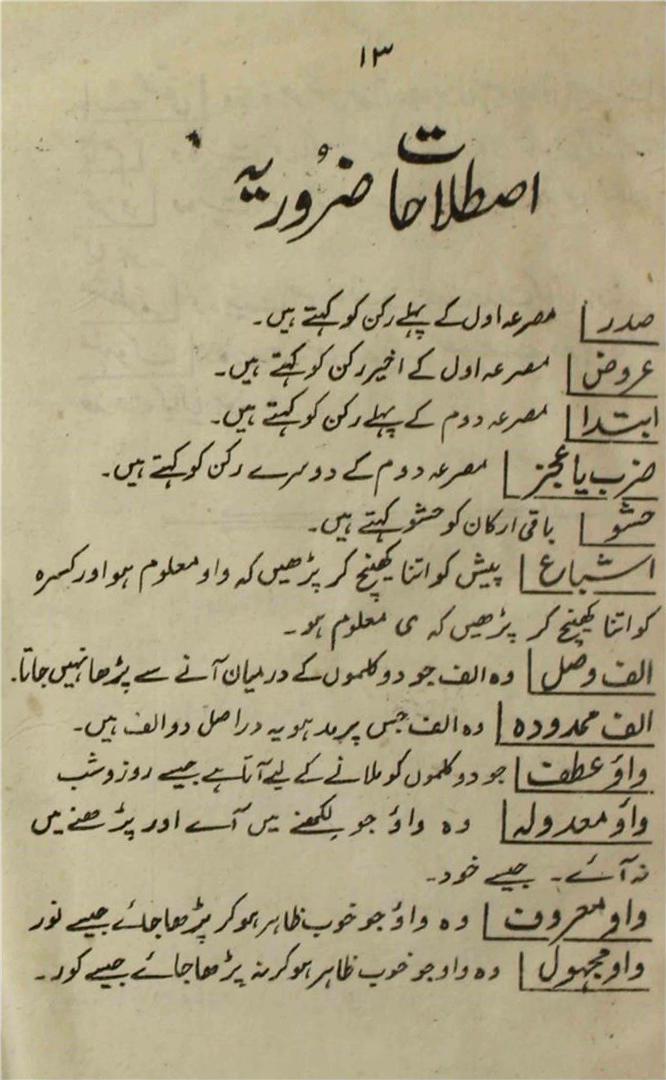 ۱۳
اصطلاحات ضروریہ
صدر مصرعہ اول کے پہلے رکن کو کہتے ہیں۔
عروض مصرعہ اول کے اخیر رکن کو کہتے ہیں۔
ابتدا مصرعہ دوم کے پہلے رکن کو کہتے ہیں۔
ضرب یا عجز مصرعہ دوم کے دوسرے رکن کو کہتے ہیں۔
حشو باقی ارکان کو حشو کہتے ہیں۔
اشباع پیش کو اتنا کھینچ کر پڑھیں کہ واو معلوم ہو اور کسرہ
کو اتنا کھینچ کر پڑھیں کہ ی معلوم ہو۔
الف وصل وہ الف جو دو کلموں کے درمیان آنے سے پڑھا نہیں جاتا۔
الف ممدودہ وہ الف جس پر مد ہو یہ دراصل دو الف ہیں۔
واؤ عطف جو دو کلموں کو ملانے کے لیے آتا ہے جیسے روز و شب
واؤ معدولہ وہ واؤ جو لکھنے میں آے اور پڑھنے میں
نہ آئے۔ جیسے خود۔
واو معروف وہ واؤ جو خوب ظاہر ہو کر پڑھا جائے جیسے نور
واو مجہول وہ واو جو خوب ظاہر ہو کر نہ پڑھا جائے جیسے کور۔